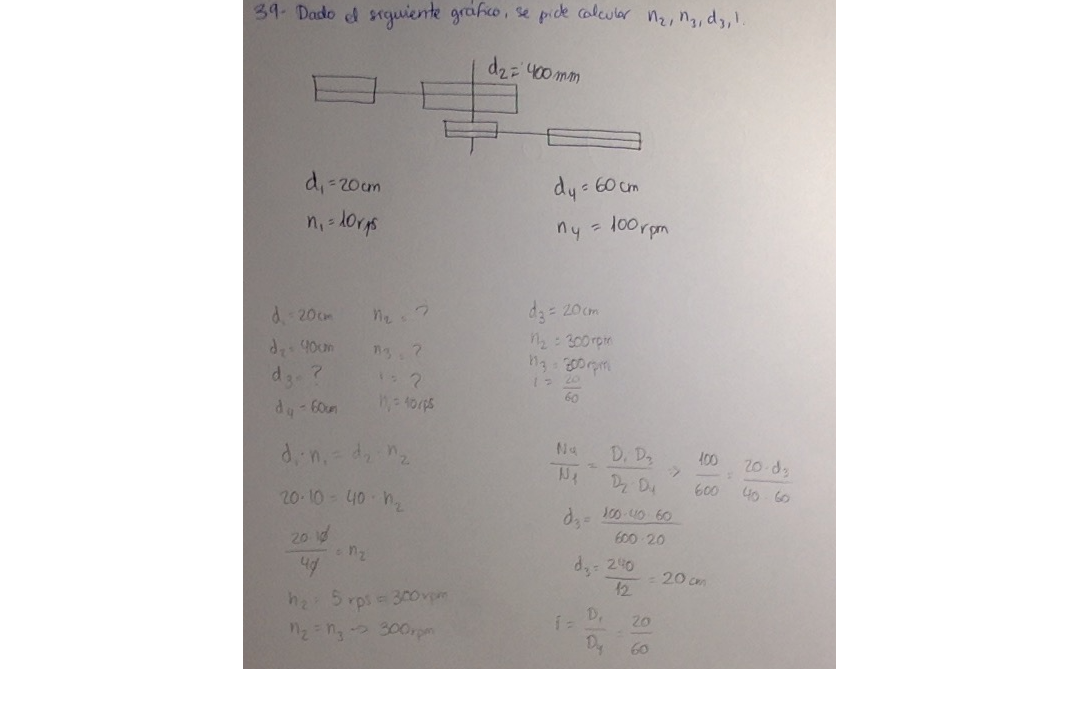 39- Dado el siguiente gráfico, se pide calcular n₂, n₃, d₃, i.
d₂ = 400mm
d₁ = 20cm d₄ = 60cm
n₁ = 10rps n₄ = 100rpm
d₁ = 20cm n₂ = ? d₃ = 20cm
d₂ = 40cm n₃ = ? n₂ = 300rpm
d₃ = ? i = ? n₃ = 300rpm
d₄ = 60cm n₁ = 10rps i = 20/60
d₁ · n₁ = d₂ · n₂
20 · 10 = 40 · n₂
20·10/40 = n₂
n₂ = 5 rps = 300rpm
n₂ = n₃ -> 300rpm
N₄/N₁ = D₁ D₃/D₂ · D₄ => 100/600 = 20 · d₃/40 · 60
d₃ = 100·40·60/600·20
d₃ = 240/12 = 20cm
i = D₁/D₄ = 20/60